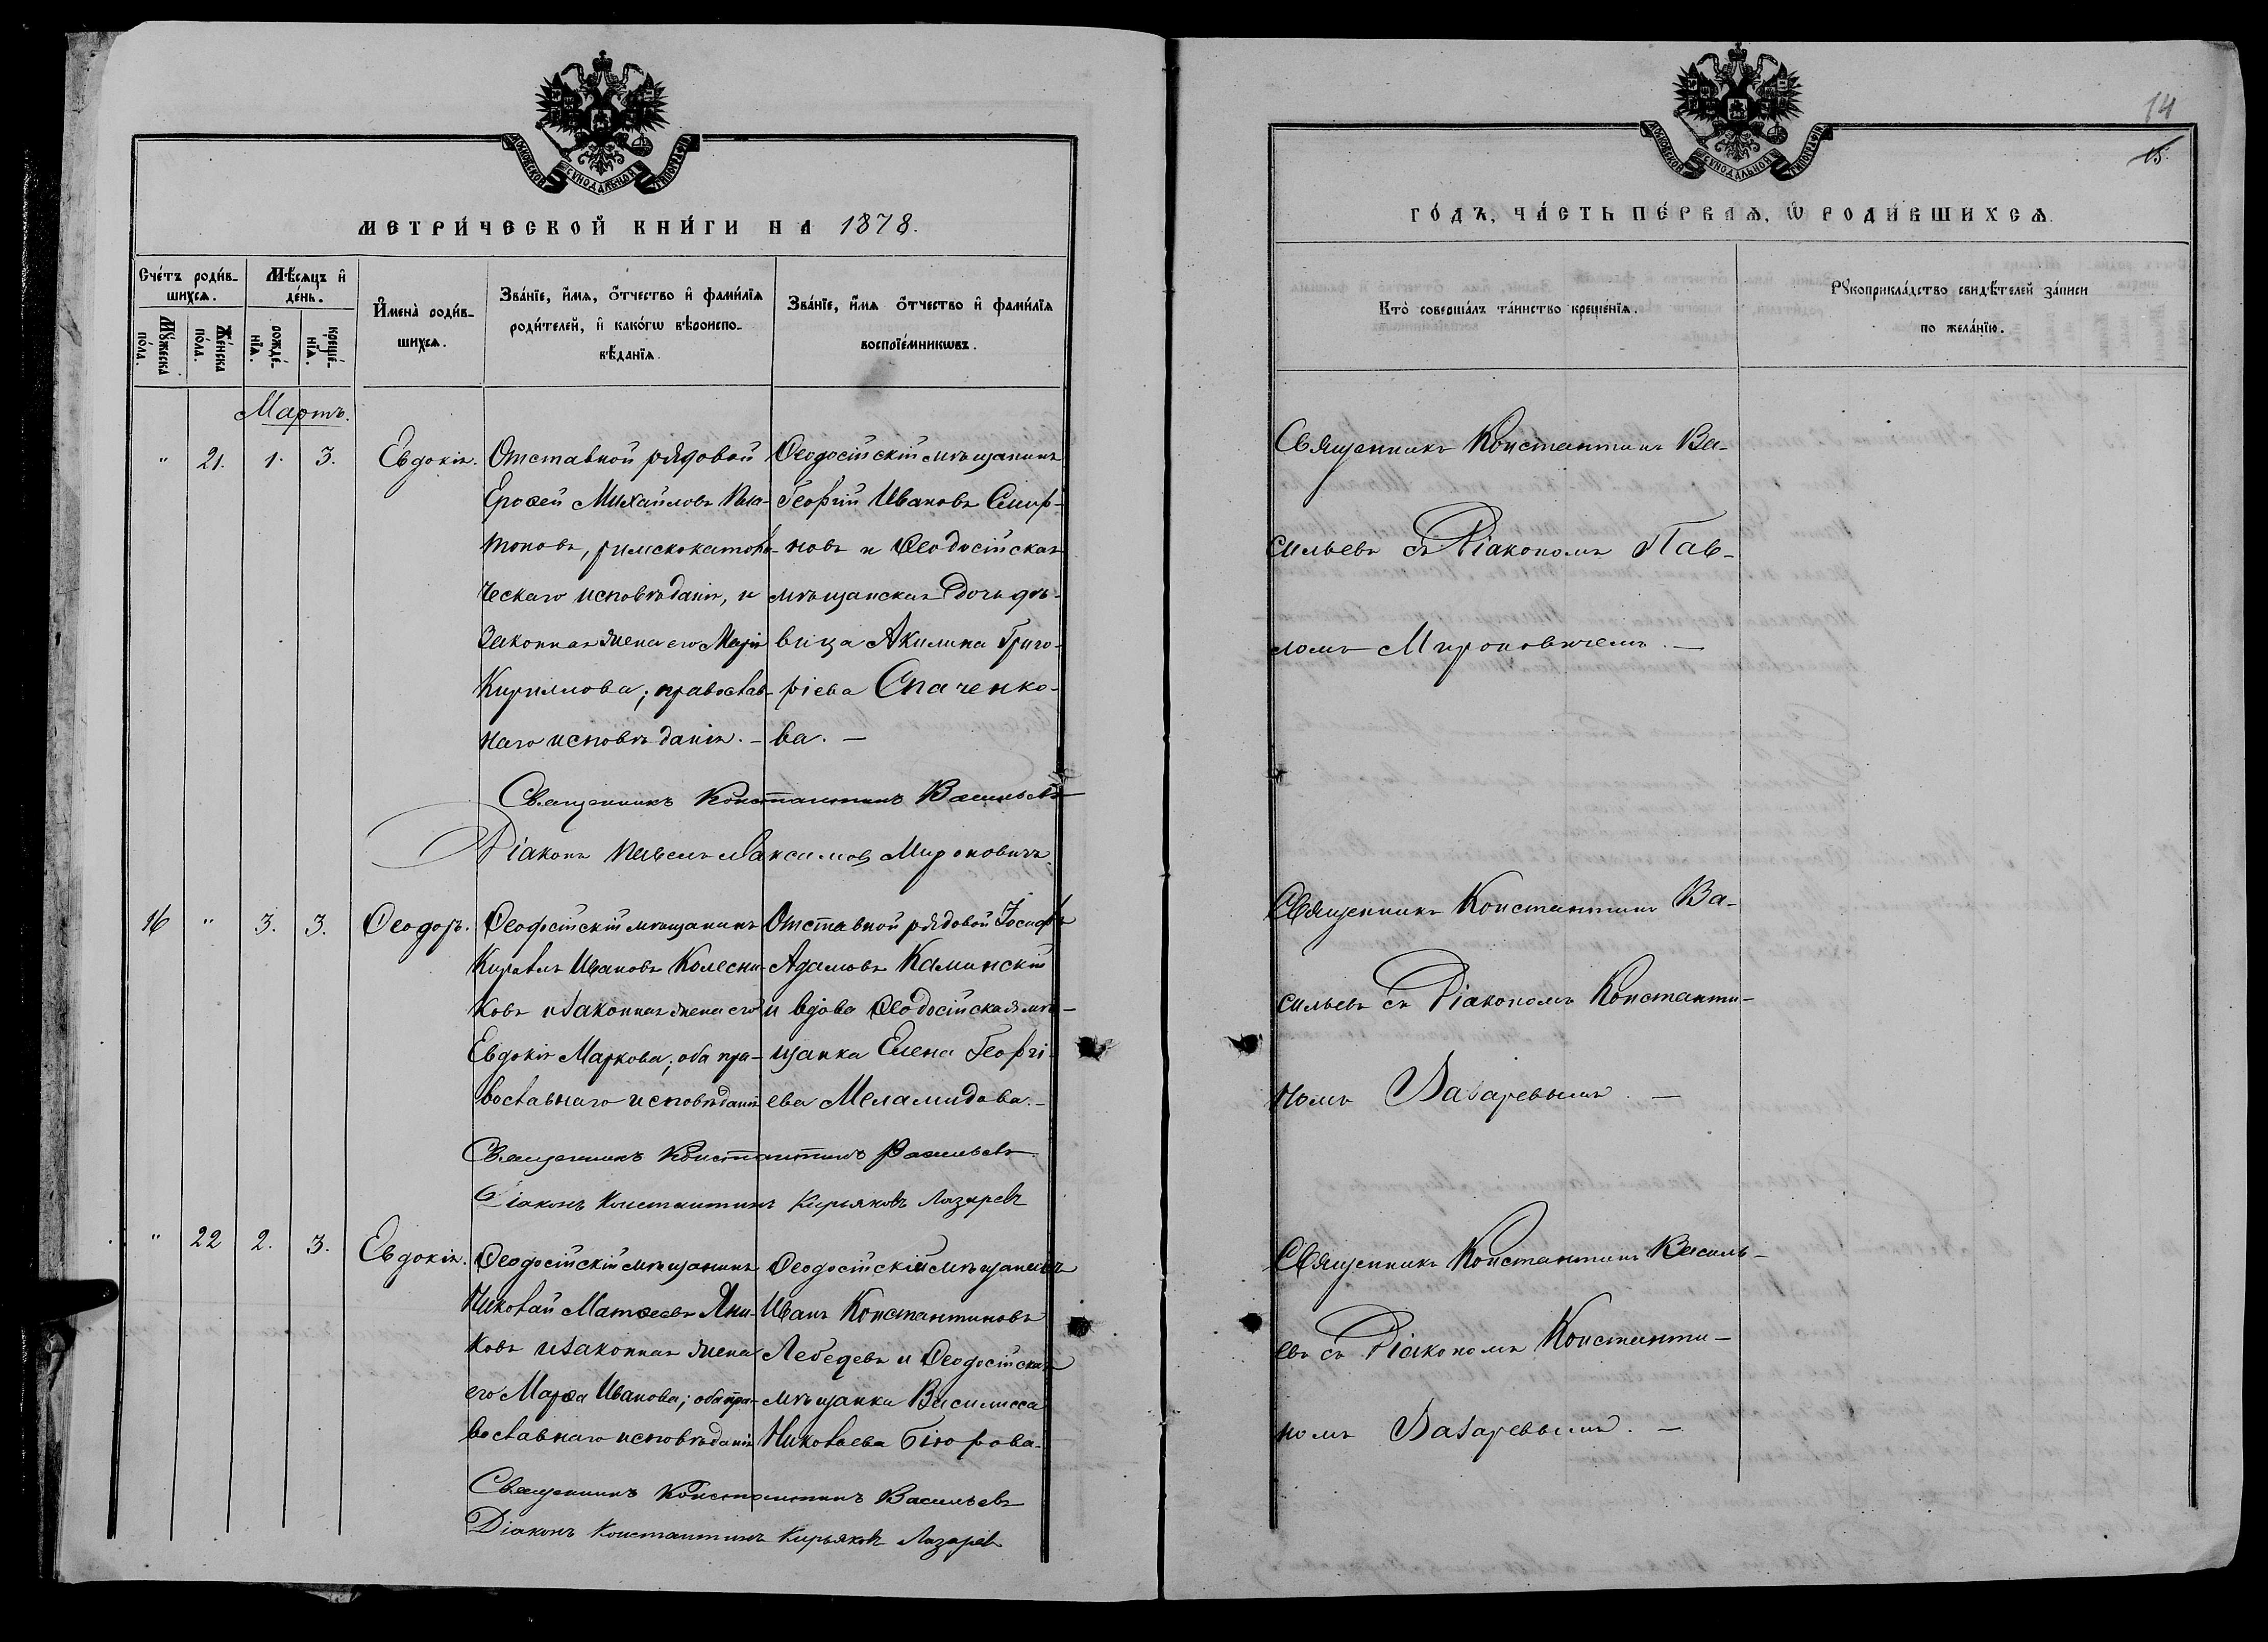 МОСКОВСКОЙ СѴНОДАЛЬНОЙ ТИПОГРАФІИ
МЕТРИ́ЧЕСКОЙ КНИ́ГИ НА 1878.
Сче́тъ роди́в-
шихсѧ.
Мѣ́сѧцъ и҆
де́нь.
Мꙋ́жеска
по́ла.
Же́нска
по́ла.
рожде́-
нїѧ.
креще́-
нїѧ.
И҆мена̀ роди́в-
шихсѧ.
Зва́нїе, и҆́мѧ, ѻ҆́тчество и҆ фами́лїѧ
роди́телей, и҆ како́гѡ вѣроиспо-
вѣ́данїѧ.
Зва́нїе, и҆́мѧ ѻ҆́тчество и҆ фами́лїѧ
воспрїе́мникѡвъ.
Мартъ.
" 21. 1. 3. Евдокія.
Отставной рядовой
Ерофей Михайловъ
римскокатоли-
ческаго исповѣданія, и
законная жена его Марія
Кириллова; православ-
наго исповѣданія. –
Ѳеодосійскій мѣщанинъ
Георгій Ивановъ Смир-
новъ и Ѳеодосійская
мѣщанская дочь дѣ-
вица Акилина Григо-
ріева Спаченко-
ва. –
Священникъ Константинъ Васильевъ
Діаконъ Павелъ Максимовъ Мироновичъ.
16 " 3. 3. Ѳеодоръ.
Ѳеодосійскій мѣщанинъ
Ивановъ Колесни-
ковъ и законная жена его
Евдокія Маркова; оба пра-
вославнаго исповѣданія
Отставной рядовой Іосифъ
Адамовъ Каминскій
и вдова Ѳеодосійская мѣ-
щанка Елена Георгі-
ева Меламидова. –
Священникъ Константинъ Васильевъ
Діаконъ Константинъ Кирьяковъ Лазаревъ
" 22 2. 3. Евдокія.
Ѳеодосійскій мѣщанинъ
Николай Матѳеевъ Яни-
ковъ и законная жена
его Марѳа Иванова; оба пра-
вославнаго исповѣданія
Ѳеодосійскій мѣщанинъ
Иванъ Константиновъ
Лебедевъ и Ѳеодосійская
мѣщанка Василисса
Николаева Бюрова.
Священникъ Константинъ Васильевъ
Діаконъ Константинъ Кирьяковъ Лазаревъ
14
15.
МОСКОВСКОЙ СѴНОДАЛЬНОЙ ТИПОГРАФІИ
ГО́ДЪ, ЧА́СТЬ ПЕ́РВАѦ, Ѡ҆ РОДИ́ВШИХСѦ.
Кто̀ соверша́лъ та́инство креще́нїѧ.
Рꙋкоприкла́дство свидѣ́телей за́писи
по жела́нїю.
Священникъ Константинъ Ва-
сильевъ съ Діакономъ Пав-
ломъ Мироновичемъ. –
Священникъ Константинъ Ва-
сильевъ съ Діакономъ Константи-
номъ Лазаревымъ. –
Священникъ Константинъ Василь-
евъ съ Діакономъ Константи-
номъ Лазаревымъ. –